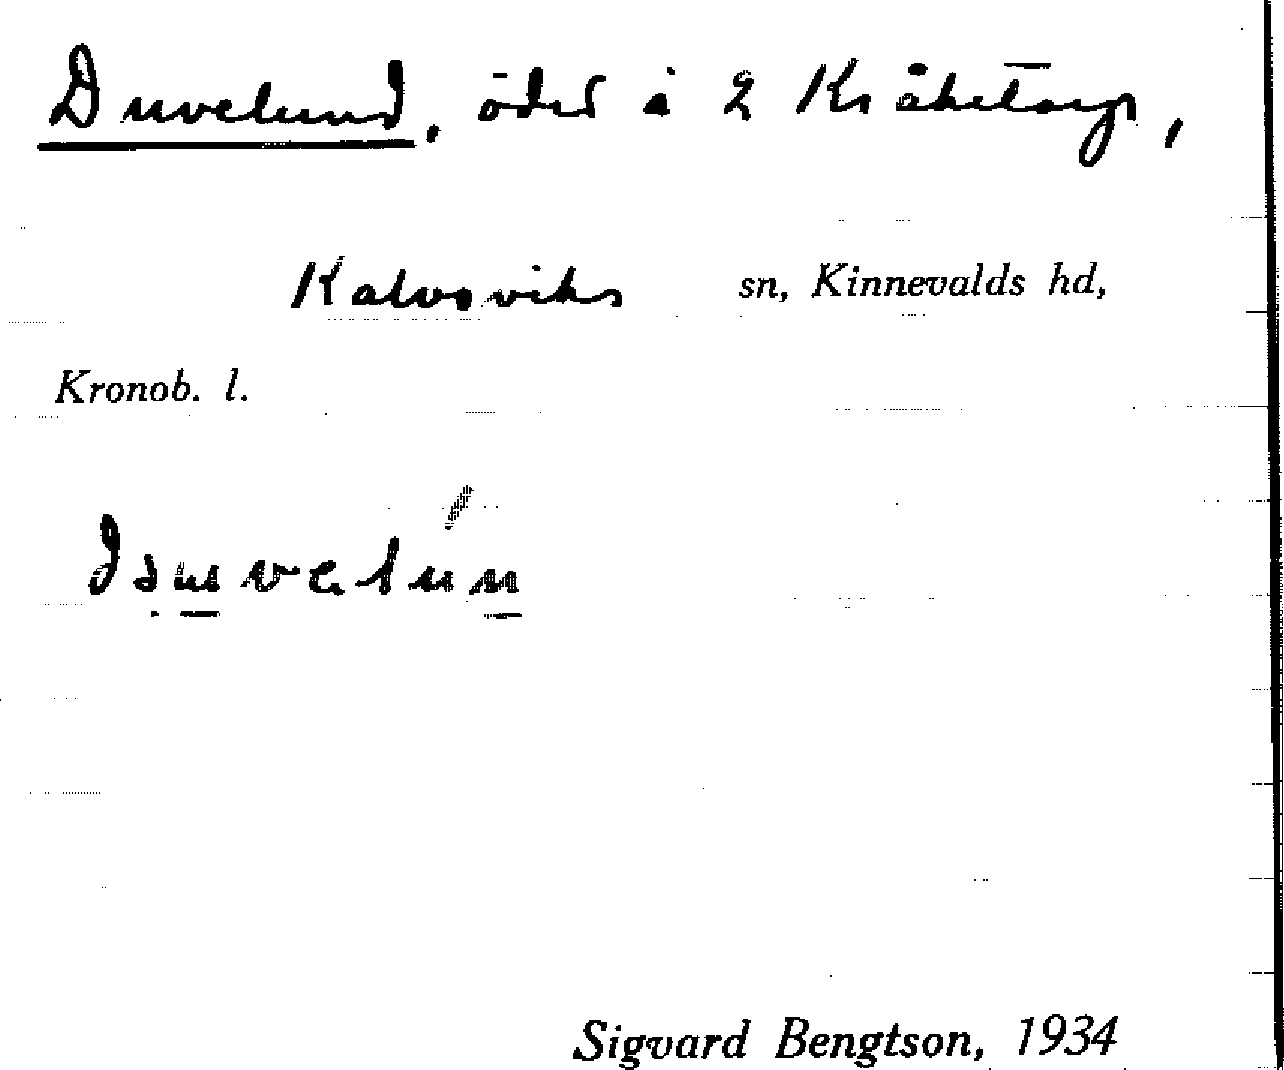 Duvelund, öde å 2 Kråketorp,
Kalvsviks sn, Kinnevalds hd,
Kronob. l.
Sigvard Bengtson, 1934